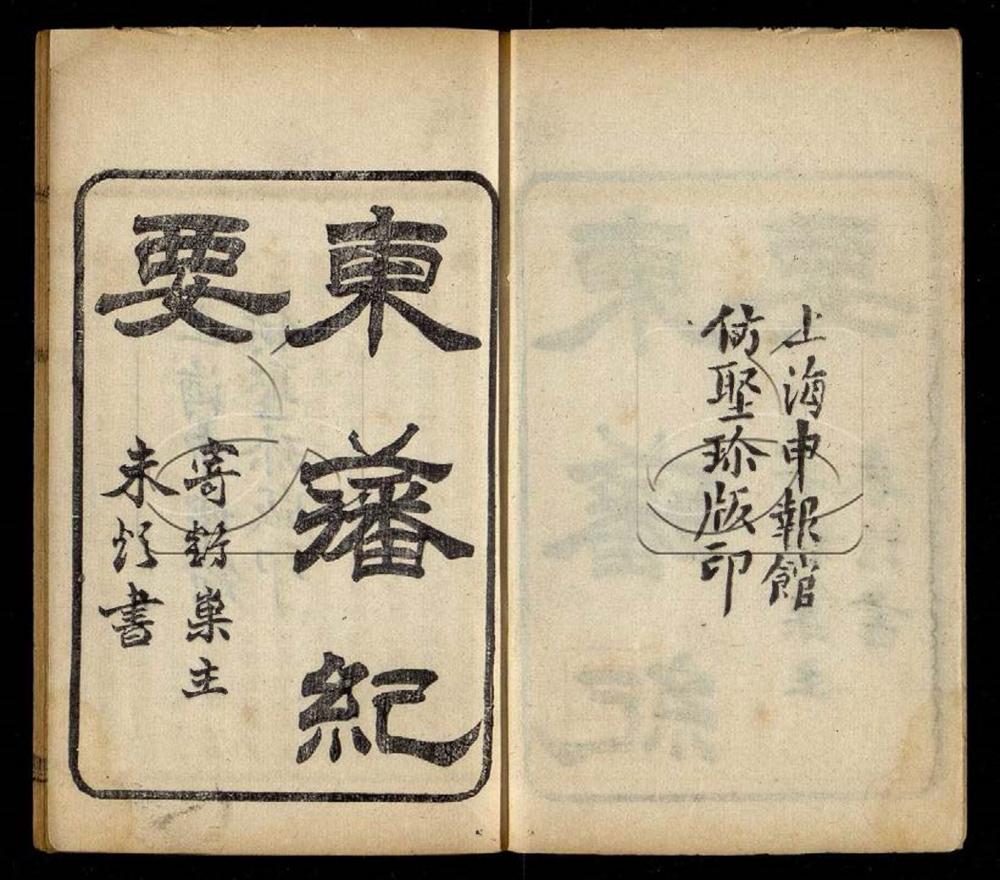 上海申報館
仿聚珍版印
東藩紀
要
寄 巢主
未 書